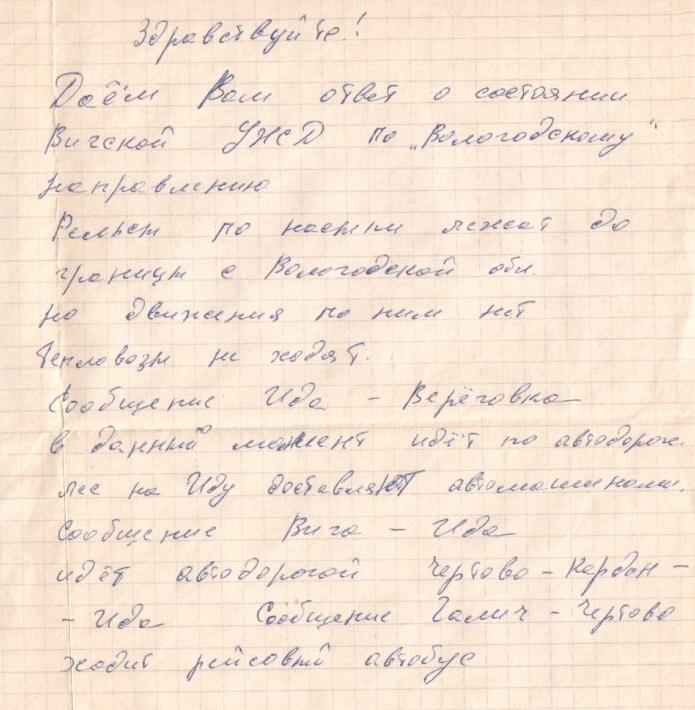 Здравствуйте!
Даём Вам ответ о состоянии
Вигской УЖД по „Вологодскому"
направлению
Рельсы по насыпи лежат до
границы с Вологодской обл.
но движения по ним нет
тепловозы не ходят.
Сообщение Ида - Верёговка
в данный момент идёт по автодороге.
лес на Иду доставляют автомашинами.
Сообщение Вига - Ида
идёт автодорогой Чертово - Кордон -
- Ида Сообщение Галич - Чертово
ходит рейсовый автобус